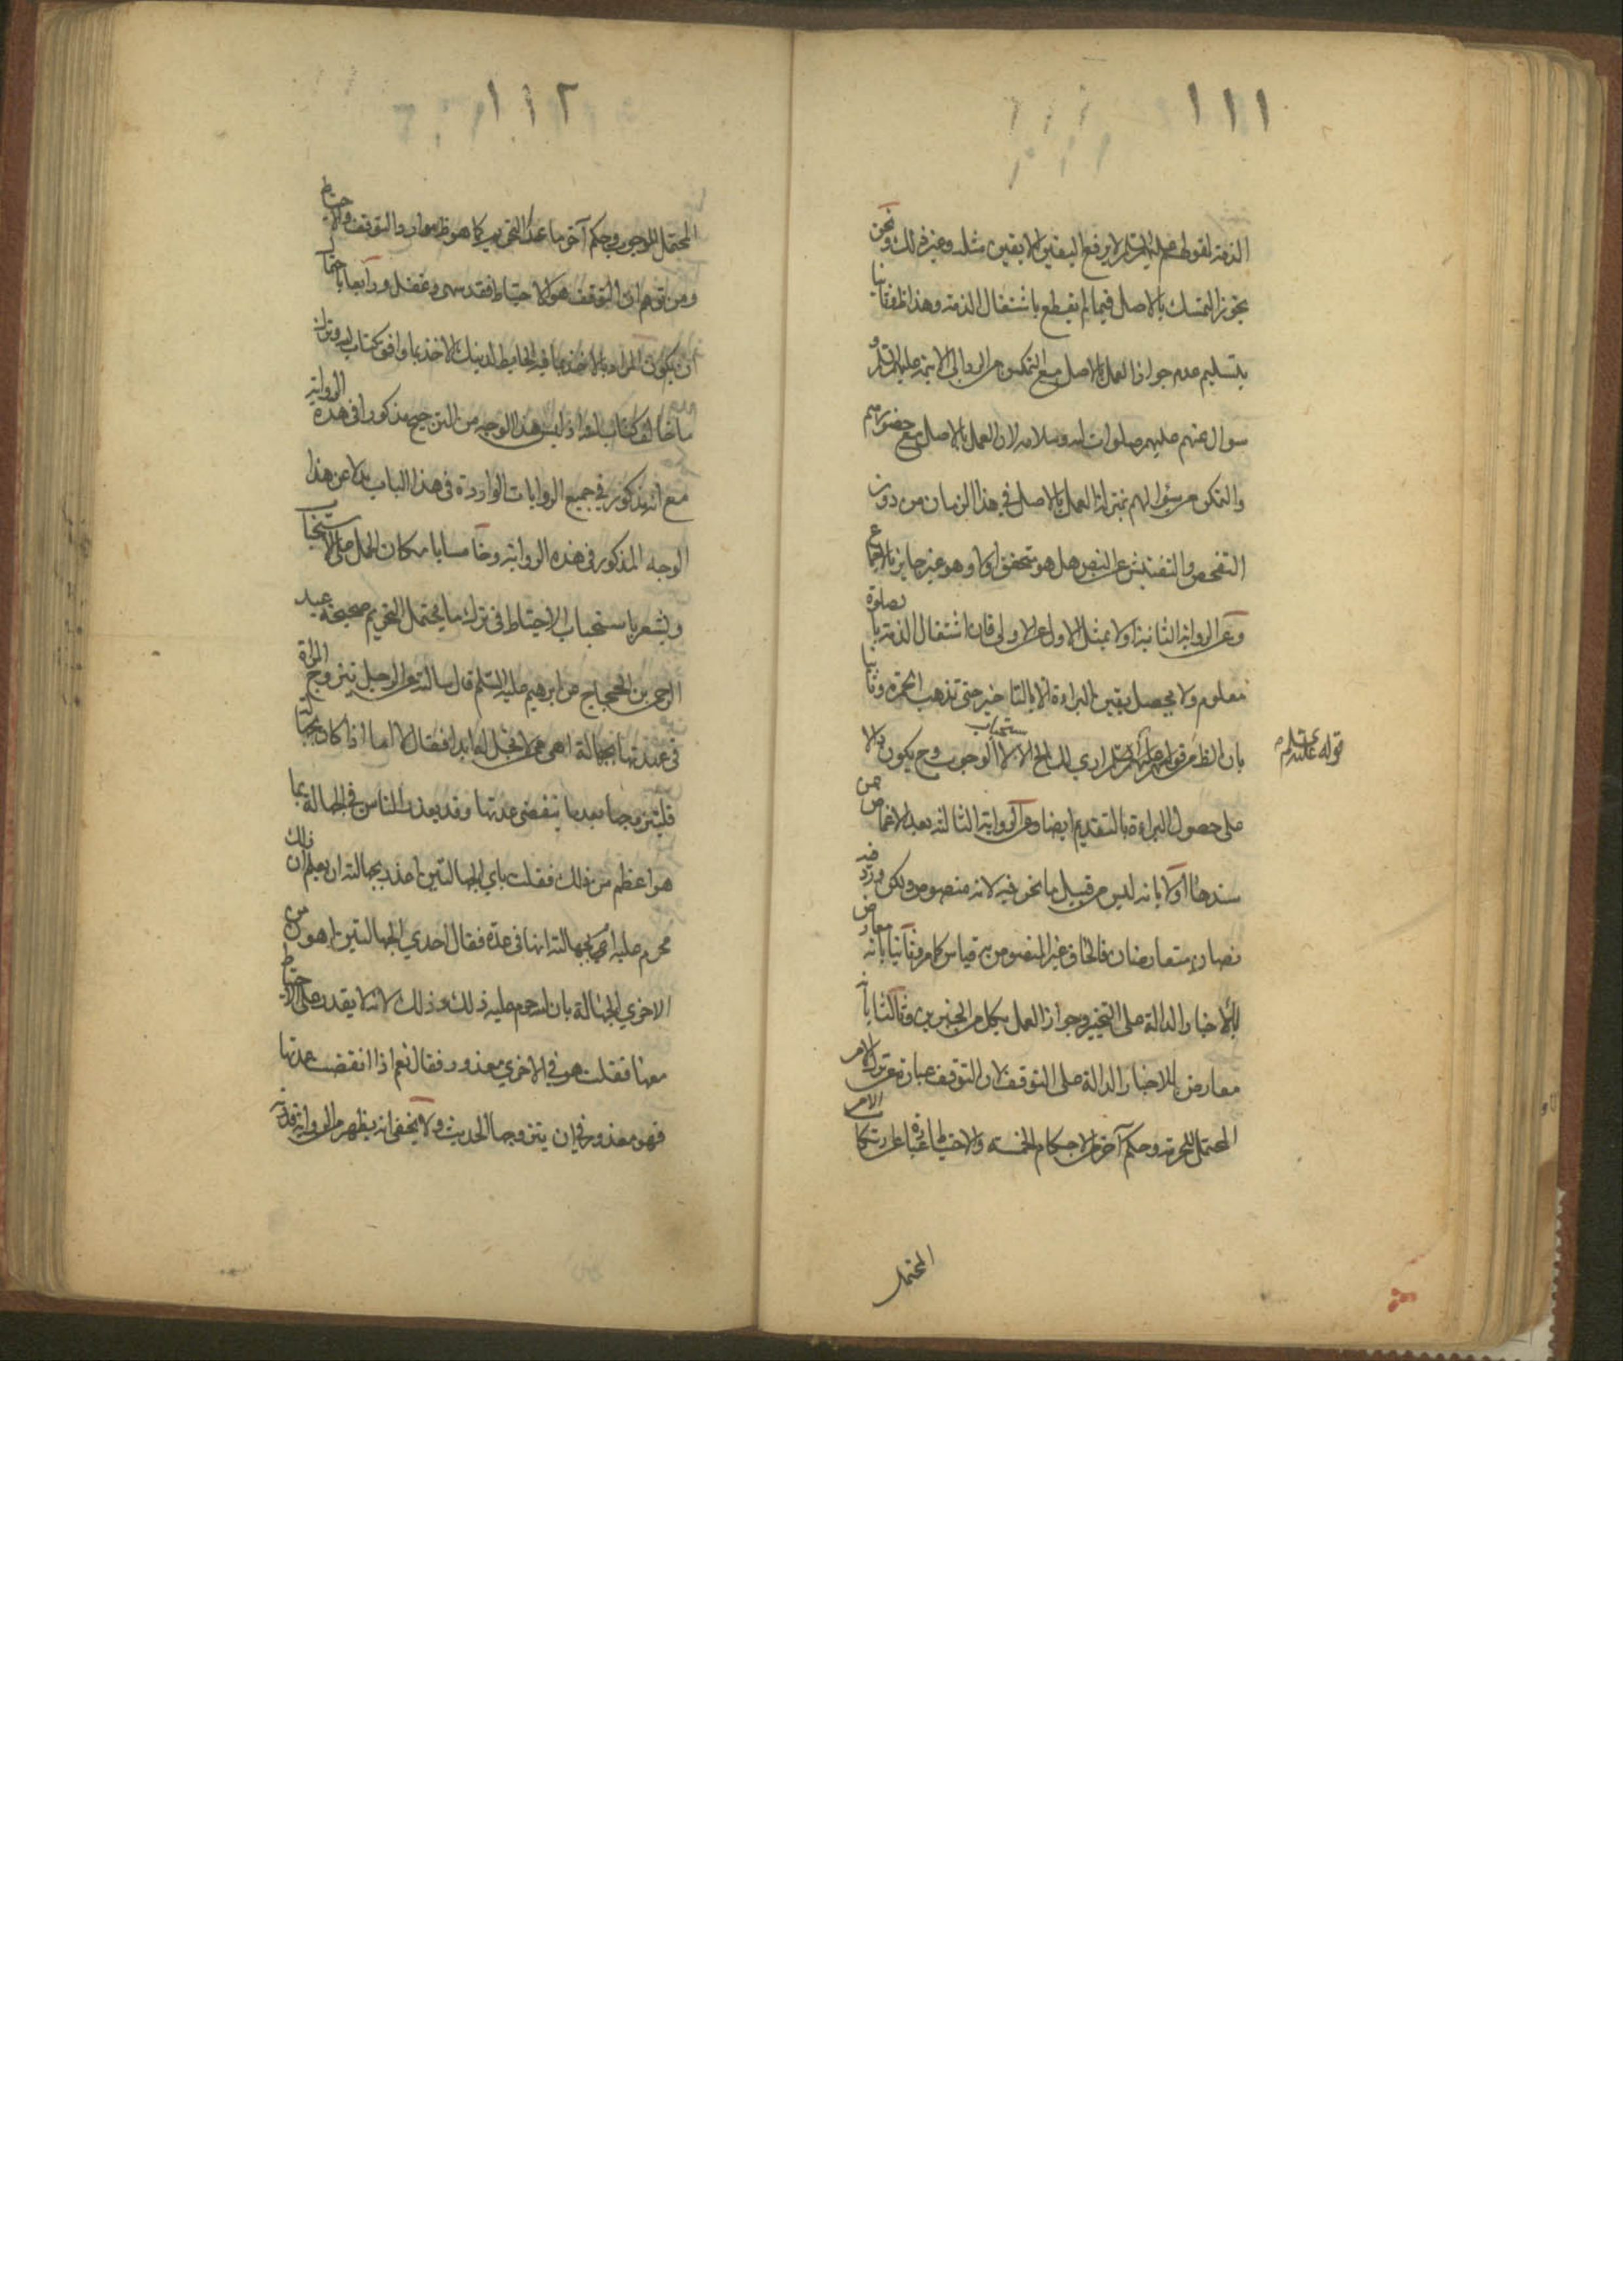 ١١١
الذمة لقولهم عليهم السلام لا يرفع اليقين الا بيقين مثله وغير ذلك ونحن
نجوز التمسك بالاصل فيما لم يقطع باشتغال الذمة وهذا ظ فثانيا
بتسليم عدم جواز العمل بالاصل مع التمكن من الى الائمة عليهم السلام و
سوال عنهم عليهم صلوات الله وسلامه لان العمل بالاصل مع حضورهم
والتمكن من سؤالهم بمنزلة العمل بالاصل في هذا الزمان من دون
التفحص والتفتيش عن النص هل هو متحقق او لا وهو غير جايز بالاجماع
وعن الرواية الثانية اولا بمثل الاول عن الاولى فان اشتغال الذمة بالصلوة
معلوم ولا يحصل يقين البراءة الا بالتاخير حتى تذهب الحمرة وثانيا
بان الظ من قوله عليه السلام ارى لك الخ الاستحباب لا الوجوب وح يكون دالا
قوله عليه السلام
على حصول البراءة بالتقديم ايضا وعن الرواية الثالثة بعد الاغماض عن
سندها اولا بانه ليس من قبيل ما نحن فيه لانه منصوص ولكن ورد فيه
نصان متعارضان فالحاق غير المنصوص به قياس كما مر وثانيا بانه معارض
بالاخبار الدالة على التخيير وجواز العمل بكل من الخبرين وثالثا بانه
معارض للاخبار الدالة على التوقف لان التوقف عبارة عن ترك الامر
المحتمل للحرمة وحكم آخر من الاحكام الخمسة والاحتياط عبارة عن ارتكاب الامر
المحتمل
١١٢
المحتمل للوجوب وحكم آخر ما عدا التحريم كما هو ظ موارد التوقف والاحتياط
ومن توهم ان التوقف هو الاحتياط فقد سهى وغفل ورابعا باحتمال
ان يكون المراد بالاخذ بما فيه الحايطة لدينك الاخذ بما وافق كتاب الله وترك
ما خالف كتاب الله اذ ليس هذا الوجه من الترجيح مذكورا في هذه الرواية
مع انه مذكور في جميع الروايات الواردة في هذا الباب بدلا عن هذا
الوجه المذكور في هذه الرواية وخامسا بامكان الحمل على الاستحباب
ويشعر باستحباب الاحتياط في ترك ما يحتمل التحريم صحيحة عبد
الرحمن بن الحجاج عن ابرهيم عليه السلم قال سالته عن الرجل يتزوج المراة
في عدتها بجهالة اهى ممن لا تحل له ابدا فقال لا اما اذا كان بجهالة
فليتزوجها بعد ما ينقضى عدتها وقد يعذر الناس في الجهالة بما
هو اعظم من ذلك فقلت باي الجهالتين اعذر بجهالته ان يعلم ان ذلك
محرم عليه ام بجهالته انها في عدة فقال احدى الجهالتين اهون من
الاخرى الجهالة بان الله حرم عليه ذلك وذلك لانه لا يقدر على الاحتياط
معها فقلت هو في الاخرى معذور فقال نعم اذا انقضت عدتها
فهو معذور في ان يتزوجها الحديث ولا يخفى انه يظهر من الرواية